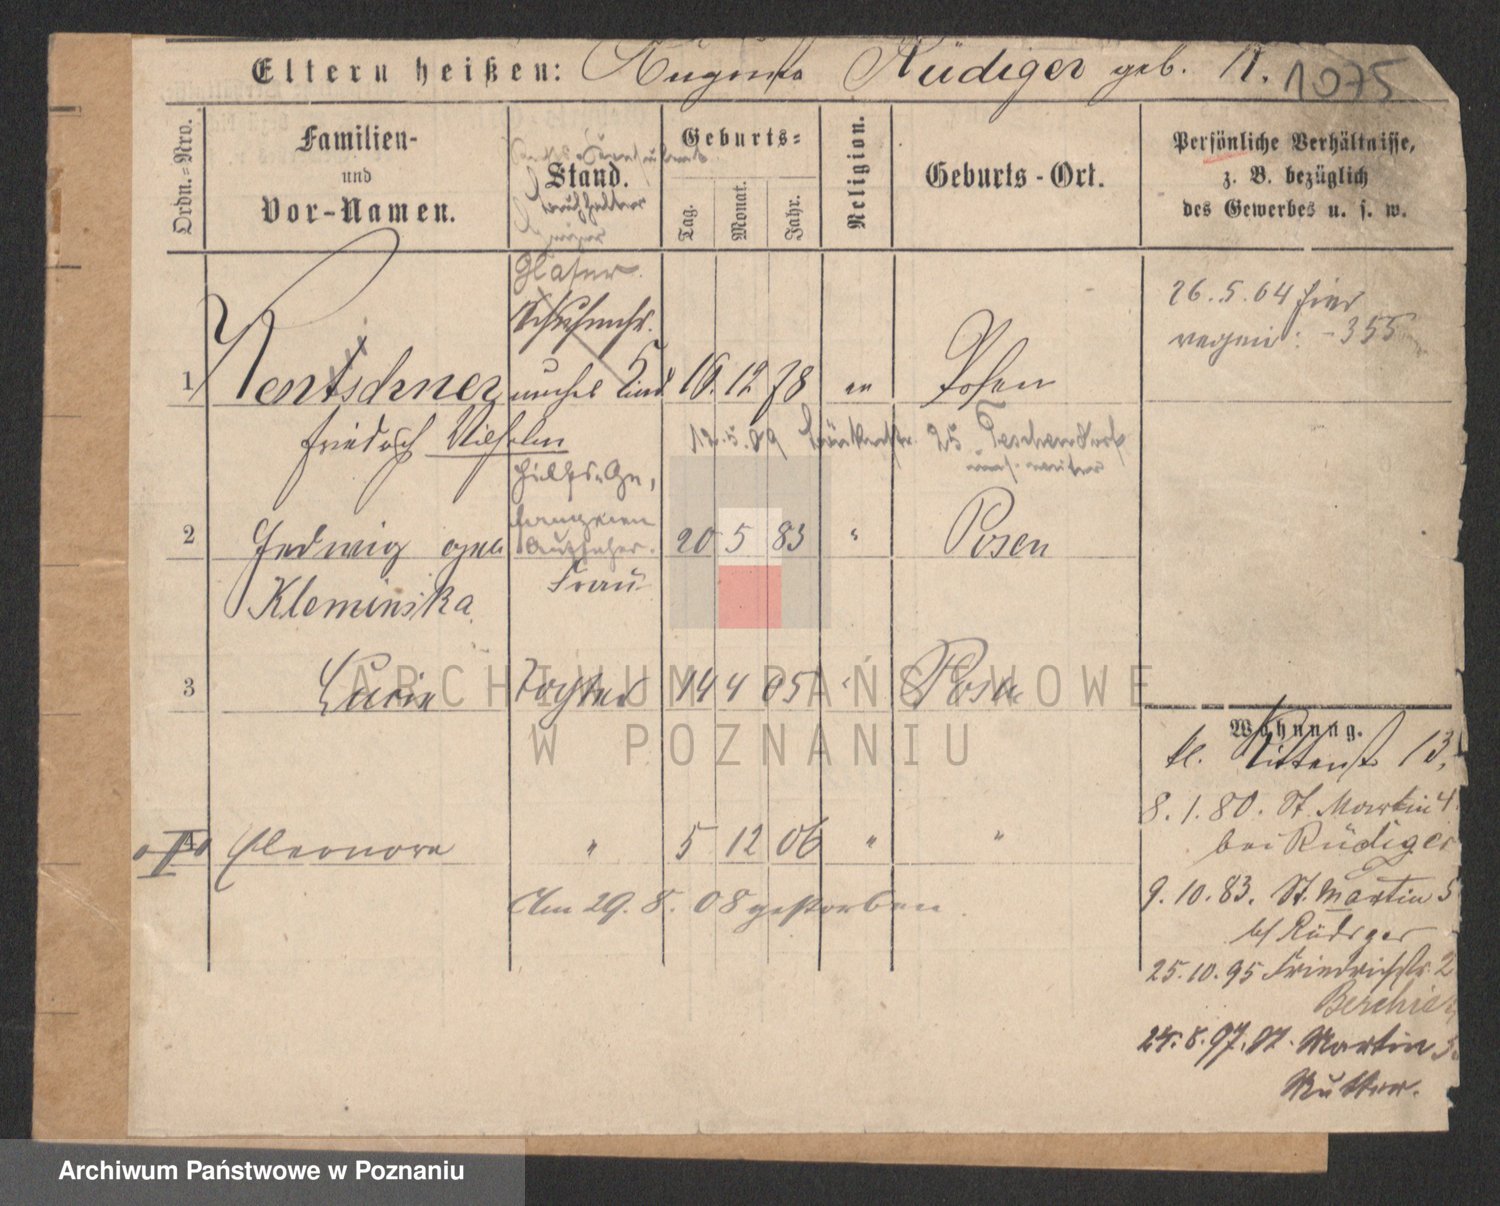 Eltern heißen: Auguste Rüdiger geb. R. 1075
Ordn.-Nro.
Familien-
und
Vor-Namen.
Stand.
Geburts-
Tag.
Monat.
Jahr.
Religion.
Geburts-Ort.
Persönliche Verhältnisse,
z. B. bezüglich
des Gewerbes u. s. w.
Buchhalter
Glaser
26.5.04 hier
355
1 Rentschner unehel. Kind 16. 12 78 ev Posen
Friedrich Wilhelm
12.5.09 25 Teschendorf
Hilfs-Ge,
fangenen
2 Hedwig geb Aufseher. 20 5 83 " Posen
Frau
Kleminska
3 Lucie Tochter 14 4 05 " Posen
Wohnung.
kl. Ritterst 13,
8.1.80. St. Martin 4.
bei Rüdiger
4 Eleonore " 5 12 06 " "
Am 29. 8. 08 gestorben.
9.10.83. St. Martin 5
b/ Rüdiger
25.10.95 Friedrichstr. 2
24.8.97. St. Martin 5.
Mutter.
ARCHIWUM PAŃSTWOWE
W POZNANIU
Archiwum Państwowe w Poznaniu